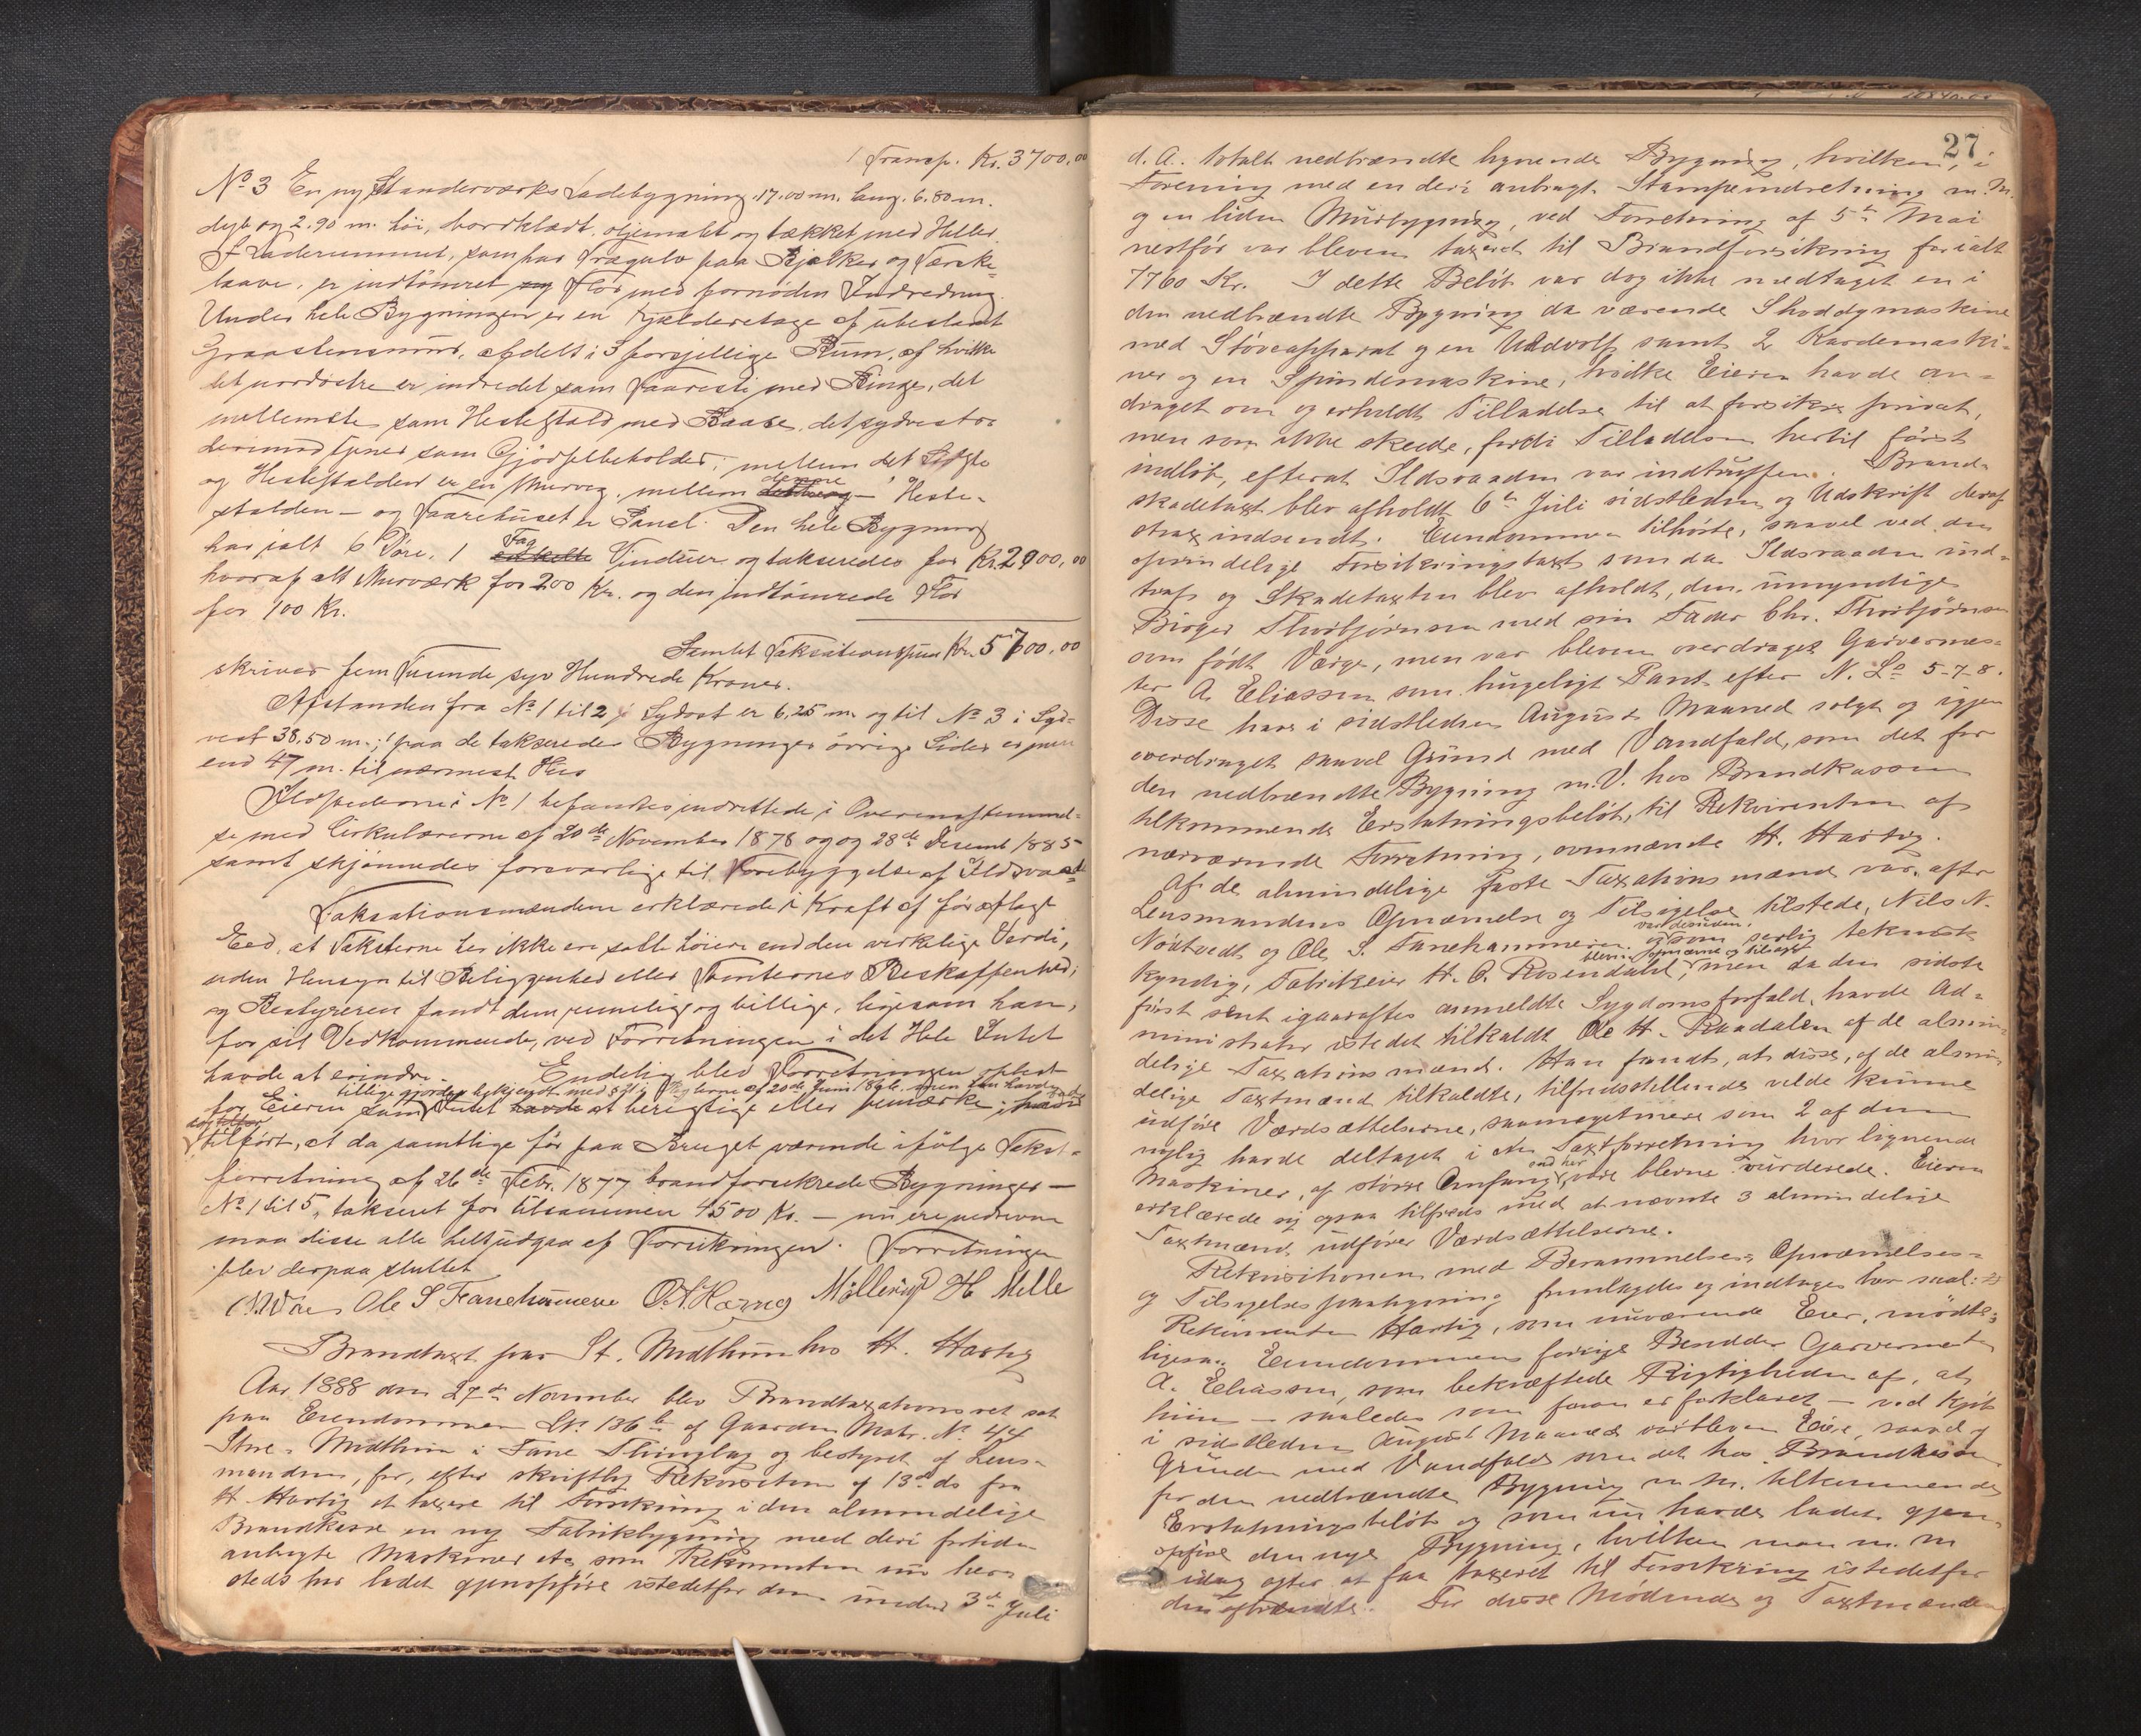 Transp. Kr. 3700,00
No 3 En ny Standerværks Ladebygning, 17.00 m. lang, 6.80 m.
dyb og 2.90 m. höi, bordklædt, oljemalet og tækket med Heller
I Laderummet, som har Trægulv paa Bjelker og Tærske-
laave, er indtömret Flor med fornöden Indredning.
Under hele Bygningen er en Kjælderetage af ubestænkt
Graastensmur, afdelt i 3 forsjellige Rum, af hvilke
det nordöstre er indredet som Faaresti med Binge, det
mellemste som Hestestald med Baase, det sydvestre
derimod tjener som Gjödselbeholder; mellem det Sidste
og Hestestalden er en Murvæg, mellem denne – Heste-
stalden – og Faarehuset er Panel. Den hele Bygning
har ialt 6 Döre, 1 Fag Vinduer og takseredes for Kr. 2000,00
hvoraf alt Murværk for 200 Kr. og den indtömrede Flor
for 100 Kr.
Samlet Taksationssum Kr. 5700,00
skriver fem Tusinde syv Hundrede Kroner.
Afstanden fra No 1 til 2 i Sydost er 6,25 m. og til No 3 i Syd-
vest 38,50 m.; paa de takserede Bygningers övrige Sider er mere
end 47 m. til nærmeste Hus
Ildstederne i No 1 befandtes indrettede i Overensstemmel-
se med Cirkulærerne af 20de November 1878 og 28de Decemb 1885
samt skjönnedes forsvarlige til Forebyggelse af Ildsvaade
Taksationsmændene erklærede i Kraft af för aflagt
Eed, at Taksterne her ikke ere satte höiere end den virkelige Værdi,
uden Hensyn til Beliggenhed eller Tomternes Beskaffenhed;
og Bestyreren fandt dem rimelige og billige, ligesom han,
for sit Vedkommende, ved Forretningen i det Hele Intet
havde at erindre. Endelig blev Forretningen oplæst
tillige gjordes bekjendt med af 20de Juni 1876. men han havde
for Eieren som Intet havde at berigtige eller bemærke
tilfört, at da samtlige för paa Bruget værende ifölge Takst-
forretning af 26de Febr. 1877 brandforsikrede Bygninger –
No 1 til 5, takseret for tilsammen 4500 Kr. – nu ere nedrevne
maa disse alle helt udgaa af Forsikringen. Forretningen
blev derpaa sluttet
Ole S Fanehammeren Möllerup H Melle
Brandtaxt paa St. Midthun hos H. Hartig
Aar 1888 den 27de November blev Brandtaxationsret sat
paa Eiendommen LNr. 136 b af Gaarden Matr. No 44
Store-Midthun i Fane Thinglag og bestyret af Lens-
manden, for, efter skriftlig Rekvisition af 13de ds fra
H Hartig at taxere til Forsikring i den almindelige
Brandkasse en ny Fabrikbygning med deri fortiden
anbragte Maskiner etc som Rekvirenten nu her-
steds har ladet gjenopföre istedetfor den under 3de Juli
27
d. A. totalt nedbrændte lignende Bygning, hvilken, i
Forening med en deri anbragt Stampeindretning m. M.
og en liden Muurbygning, ved Forretning af 5te Mai
nestför var bleven taxeret til Brandforsikring for ialt
7760 Kr. I dette Belöb var dog ikke medtaget en i
den nedbrændte Bygning da værende Shoddymaskine
med Stöveapparat og en Uldvolf samt 2 Kardemaski-
ner og en Spindemaskine, hvilke Eieren havde an-
draget om og erholdt Tilladelse til at forsikre privat,
men som ikke skeede, fordi Tilladelsen hertil först
indlöb, efterat Ildsvaaden var indtruffen. Brand-
skadetaxt blev afholdt 6te Juli sidstleden og Udskrift deraf
strax indsendt. Eiendommen tilhörte, saavel ved den
oprindelige Forsikringstaxt som da Ildsvaaden ind-
traf og Skadetaxten blev afholdt, den umyndige
Birger Thorbjörnsen med sin Fader Chr. Thorbjörnsen
som födt Værge, men var bleven overdraget Garvermes-
ter A. Eliassen som brugeligt Pant efter N. L. 5-7-8.
Disse have i sidstleden August Maaned solgt og igjen
overdraget saavel Grund med Vandfald, som det for
den nedbrændte Bygning m. V. hos Brandkassen
tilkommende Erstatningsbelöb, til Rekvirenten af
nærværende Forretning, ovennævnte H. Hartig.
Af de almindelige faste Taxationsmænd var, efter
Lensmandens Opnævnelse og Tilsigelse tilstede, Nils N.
Nöttvedt og Ole S. Fanehammeren. var desuden,
og som særlig teknisk
kyndig, Fabrikeier H. C. Rosendahl, bleven opnævnt og tilsagt, men da den sidste
först sent igaaraftes anmeldte Sygdomsforfald, havde Ad-
ministrator istedet tilkaldt Ole H. Raadalen af de almin-
delige Taxationsmænd. Han fandt, at disse, af de almin-
delige Taxtmænd tilkaldte, tilfredsstillende vilde kunne
udföre Værdsættelserne, saameget mere som 2 af dem
nylig havde deltaget i en Taxtforretning hvor lignende
Maskiner, af större Omfang end her, vare blevne vurderede. Eieren
erklærede sig ogsaa tilfreds med at nævnte 3 almindelige
Taxtmænd udförer Værdsættelserne.
Rekvisitionen med Berammelses-, Opnævnelses-
og Tilsigelses paategning fremlagdes og indtages her saal:
Rekvirenten Hartig, som nuværende Eier, mödte,
ligesaa Eiendommens forrige Besidder Garvermester
A. Eliassen, som bekræftede Rigtigheden af, at
hiin – saaledes som foran er forklaret – ved Kjöb
i sidstleden August Maaned var bleven Eier, saavel af
Grunden med Vandfald som det hos Brandkassen
for den nedbrændte Bygning m. M. tilkommende
Erstatningsbelöb og som nu havde ladet gjen-
opföre den nye Bygning, hvilken man m. M
idag agter at faa taxeret til Forsikring istedetfor
den afbrændte. For disse Mödende og Taxtmændene